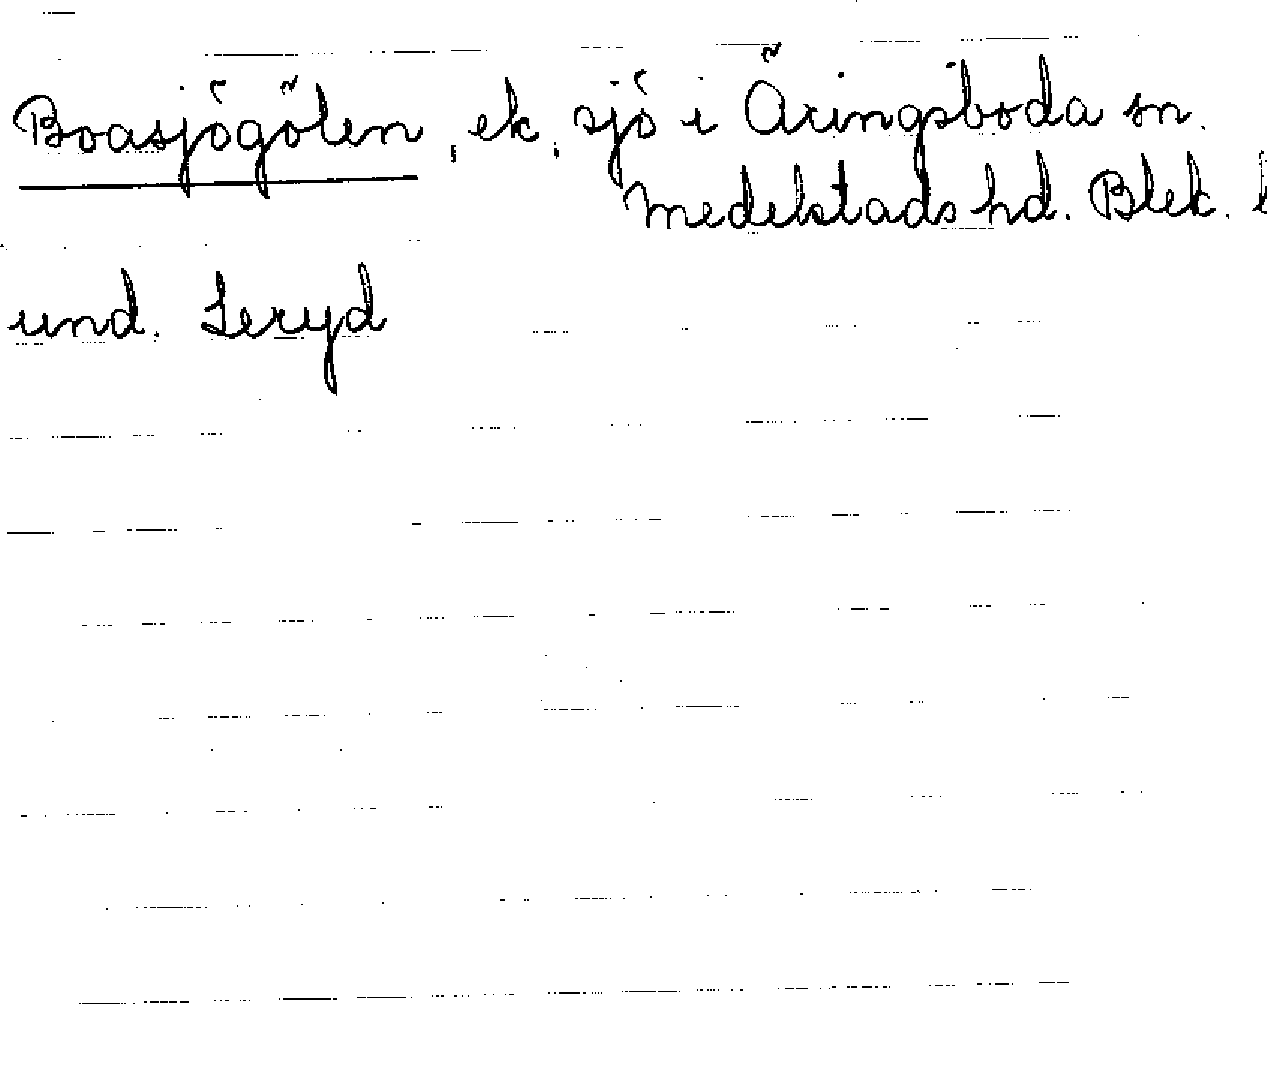 Boasjögölen, ek, sjö i Öringsboda sn.
Medelstads hd. Blek. l
und. Leryd